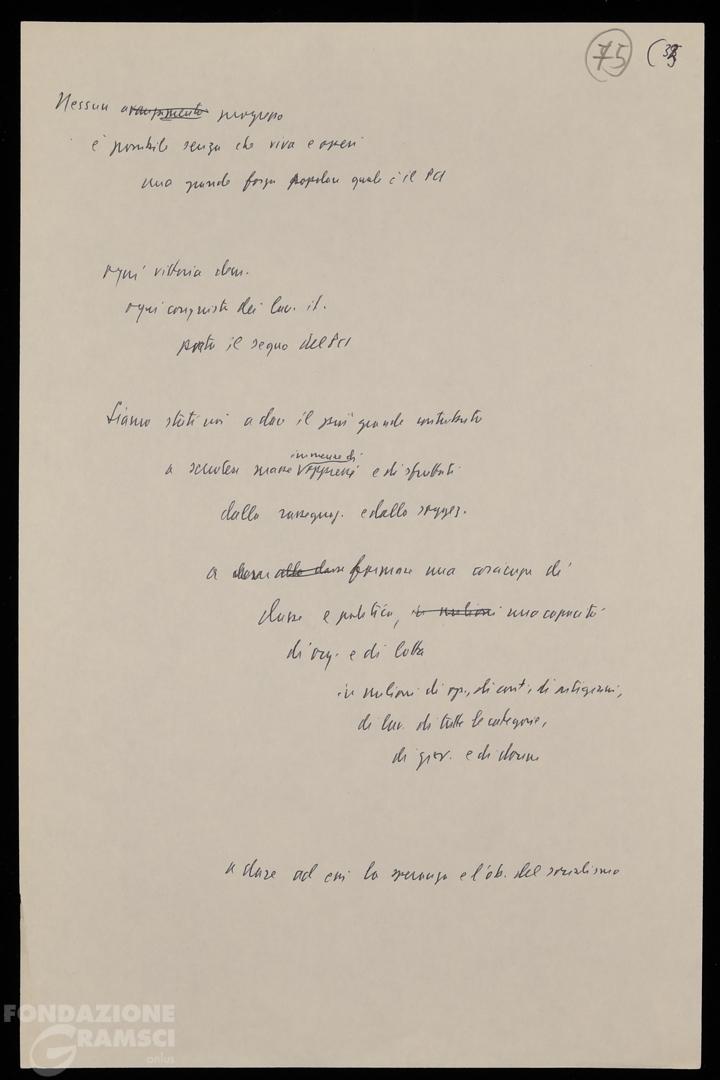 75 (35
Nessun avanzamento progresso
è possibile senza che viva e operi
una grande forza popolare quale è il PCI
ogni vittoria dem.
ogni conquista dei lav. it.
porta il segno del PCI
Siamo stati noi a dare il più grande contributo
immense di
a scuotere masse oppressi e di sfruttati
dalla rassegnaz. e dalla soggez.
a dare alla classe formare una coscienza di
classe e politica, in milioni una capacità
di org. e di lotta
in milioni di op., di cont., di artigiani,
di lav. di tutte le categorie,
di giov. e di donne
a dare ad essi la speranza e l'ob. del socialismo
FONDAZIONE
GRAMSCI
onlus